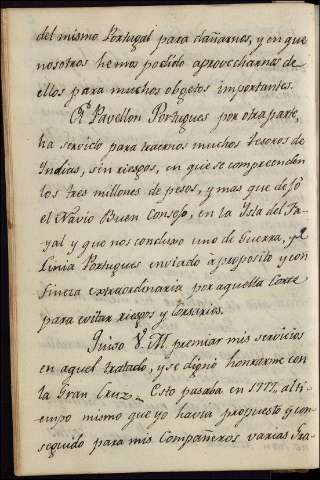 del mismo Portugal para dañarnos, y en que
nosotros hemos podido aprovecharnos de
ellos para muchos objetos importantes.
El Pavellon Portugues por otra parte,
ha servido para traernos muchos tesoros de
Indias, sin riesgos, en que se comprenden
los tres millones de pesos, y mas que dejó
el Navio Buen Consejo, en la Isla del Fa-
yal y que nos conduxo uno de Guerra, de
Linia Portugues enviado aproposito y con
fineza extraordinaria por aquella Corte
para evitar riesgos y Corsarios.
Quiso V. M. premiar mis servicios
en aquel tratado, y se dignó honrarme con
la Gran Cruz. Esto pasaba en 1777, al ti-
empo mismo que yo havia propuesto y con-
seguido para mis Compañeros varias Gra-